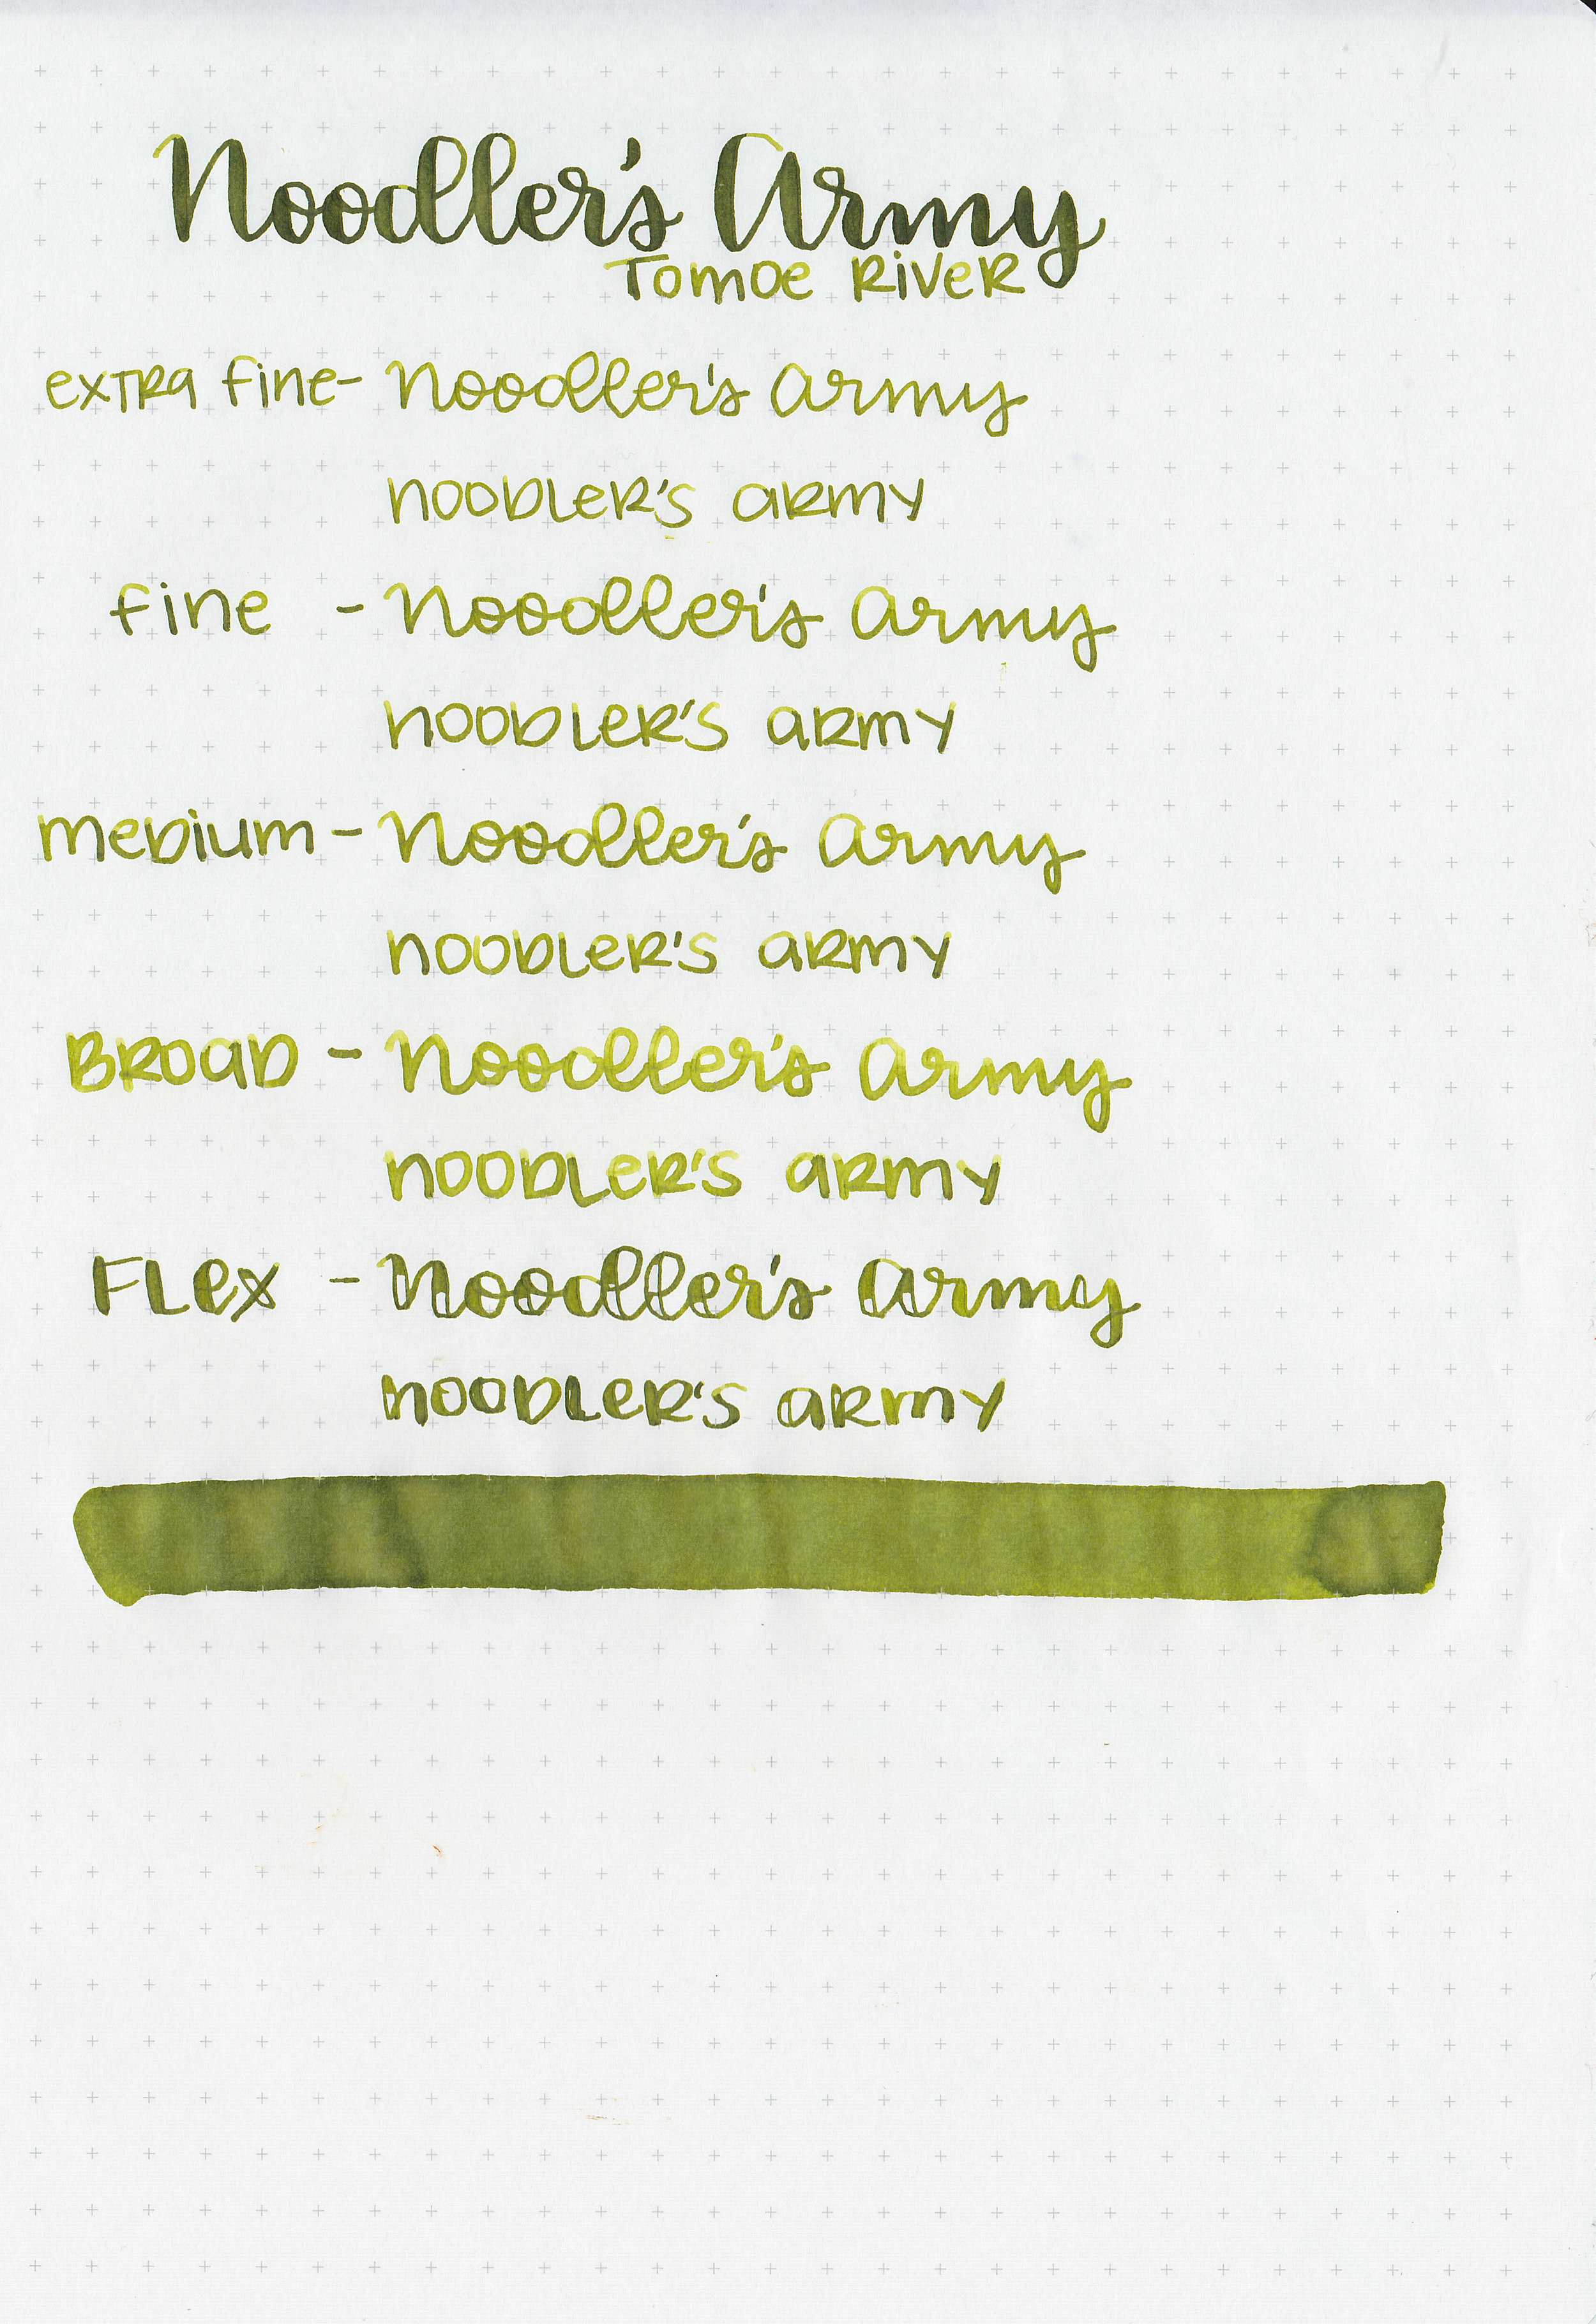 Noodler's Army
Tomoe River
extra fine- Noodler's Army
noodler's army
fine - Noodler's Army
noodler's army
medium - Noodler's Army
noodler's army
Broad - Noodler's Army
noodler's army
Flex - Noodler's Army
noodler's army